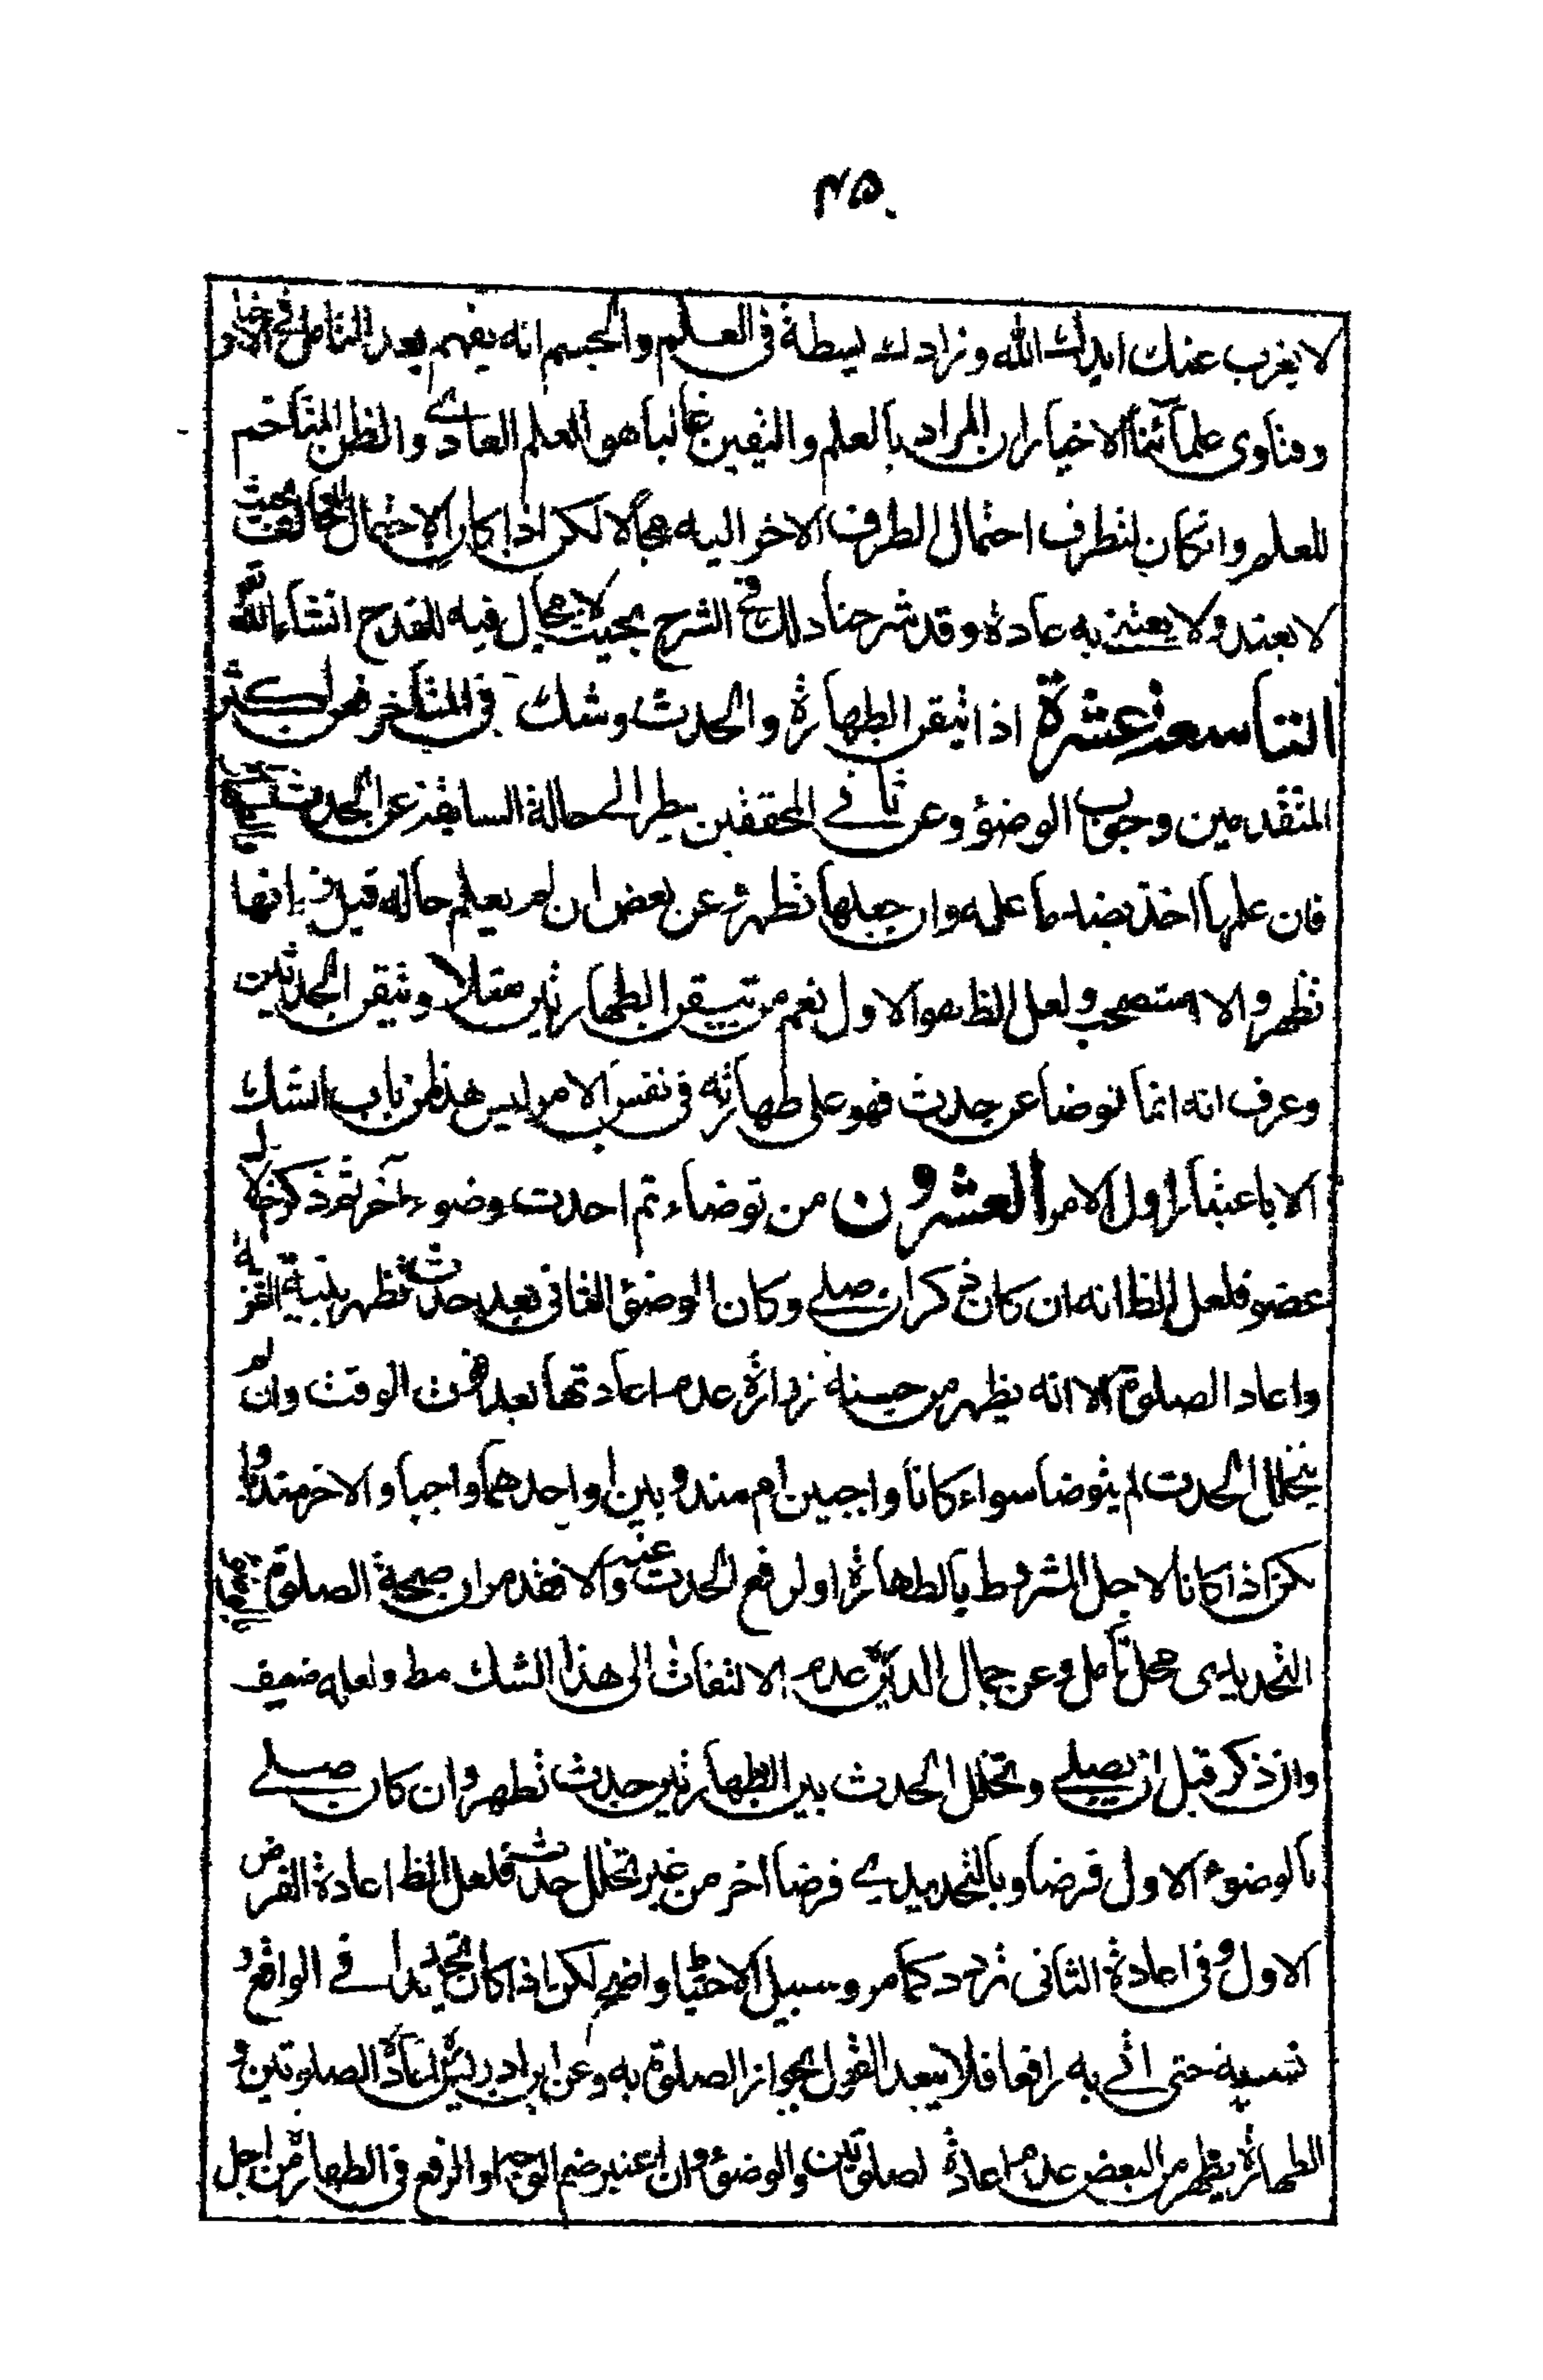 ٤٥
لا يغرب عنك ايدك الله وزادك بسطة في العلم والجسم انه يفهم بعد التامل في الاخبار
وفتاوى علمائنا الاخيار ان المراد بالعلم واليقين غالبا هو العلم العادي والظن المتاخم
للعلم وانكان لتطرف احتمال الطرف الاخر اليه مجالا لكن اذا كان الاحتمال المخالف بحيث
لا يعتد ولا يعتنى به عادة وقد شرحنا ذلك في الشرح بحيث لا مجال فيه للقدح انشاء الله تع
التاسعة عشرة اذا تيقن الطهارة والحدث وشك في المتاخر فعن اكثر
المتقدمين وجوب الوضوء وعن ثاني المحققين ينظر الى حالة السابقة عن الحدث
فان علمها اخذ بضد ما علمه وان جهلها تطهر وعن بعض ان لم يعلم حاله قبل زمانها
تطهر والا استصحب ولعل الظ هو الاول نعم من تيقن الطهارتين مثلا وتيقن الحدثين
وعرف انه انما توضا عن حدث فهو على طهارته في نفس الامر ليس هذا من باب الشك
الا باعتبار اول الامر العشرون من توضاء ثم احدث وضوء آخر ثم ذكر خلا لا
عضو فلعل الظ انه ان كان ذكر ان صلى وكان الوضوء الثانى بعد حدث تطهر بنية القربة
واعاد الصلوة الا انه يظهر من حسنة زرارة عدم اعادتها بعد فوت الوقت وان لم
يتخلل الحدث لم يتوضا سواء كانا واجبين ام مندوبين او احدهما واجبا والاخر مندوبا
لكن اذا كانا لاجل المشروط بالطهارة او لرفع الحدث عنه والا فقد مر ان صحة الصلوة
التجديدى محل تامل وعن جمال الدين عدم الالتفات الى هذا الشك مط ولعله ضعيف
وان ذكر قبل ان يصلى وتخلل الحدث بين الطهارتين حدث تطهر وان كان صلى
بالوضوء الاول فرضا وبالتجديدي فرضا اخر من غير تخلل حدث فلعل الظ اعادة الفرض
الاول وفى اعادة الثانى تردد كما مر وسبيل الاحتيا واضح لكن اذا كان تجديدا في الواقع و
نسيه حتى اتى به رافعا فلا يبعد القول بجواز الصلوة به وعن ابن ادريس اعادة الصلوتين و
الطهارة يظهر من البعض عدم اعادة لصلوتين والوضوء وان اعتبر ضم الوجه او الرفع في الطهارة من اجل